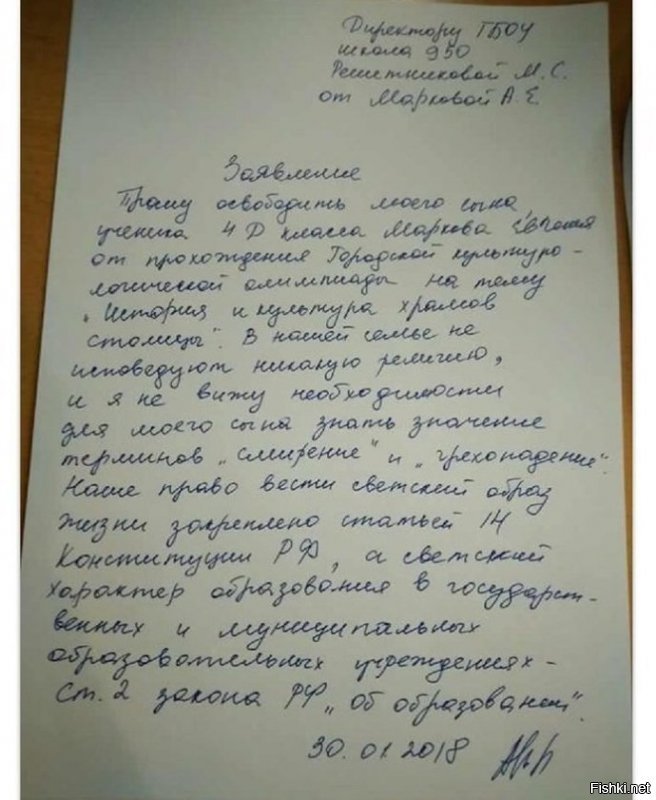 Директору ГБОУ
школа 950
Решетниковой М. С.
от Марковой А. Е
Заявление
Прошу освободить моего сына
ученика 4 Д класса Маркова Евгения
от прохождения Городской культуро-
логической олимпиады на тему
„История и культура храмов
столицы". В нашей семье не
исповедуют никакую религию,
и я не вижу необходимости
для моего сына знать значение
терминов „смирение" и „грехопадение".
Наше право вести светский образ
жизни закреплено статьей 14
Конституции РФ, а светский
характер образования в государст-
венных и муниципальных
образовательных учреждениях -
ст. 2 закона РФ „об образовании".
30.01.2018
Fishki.net